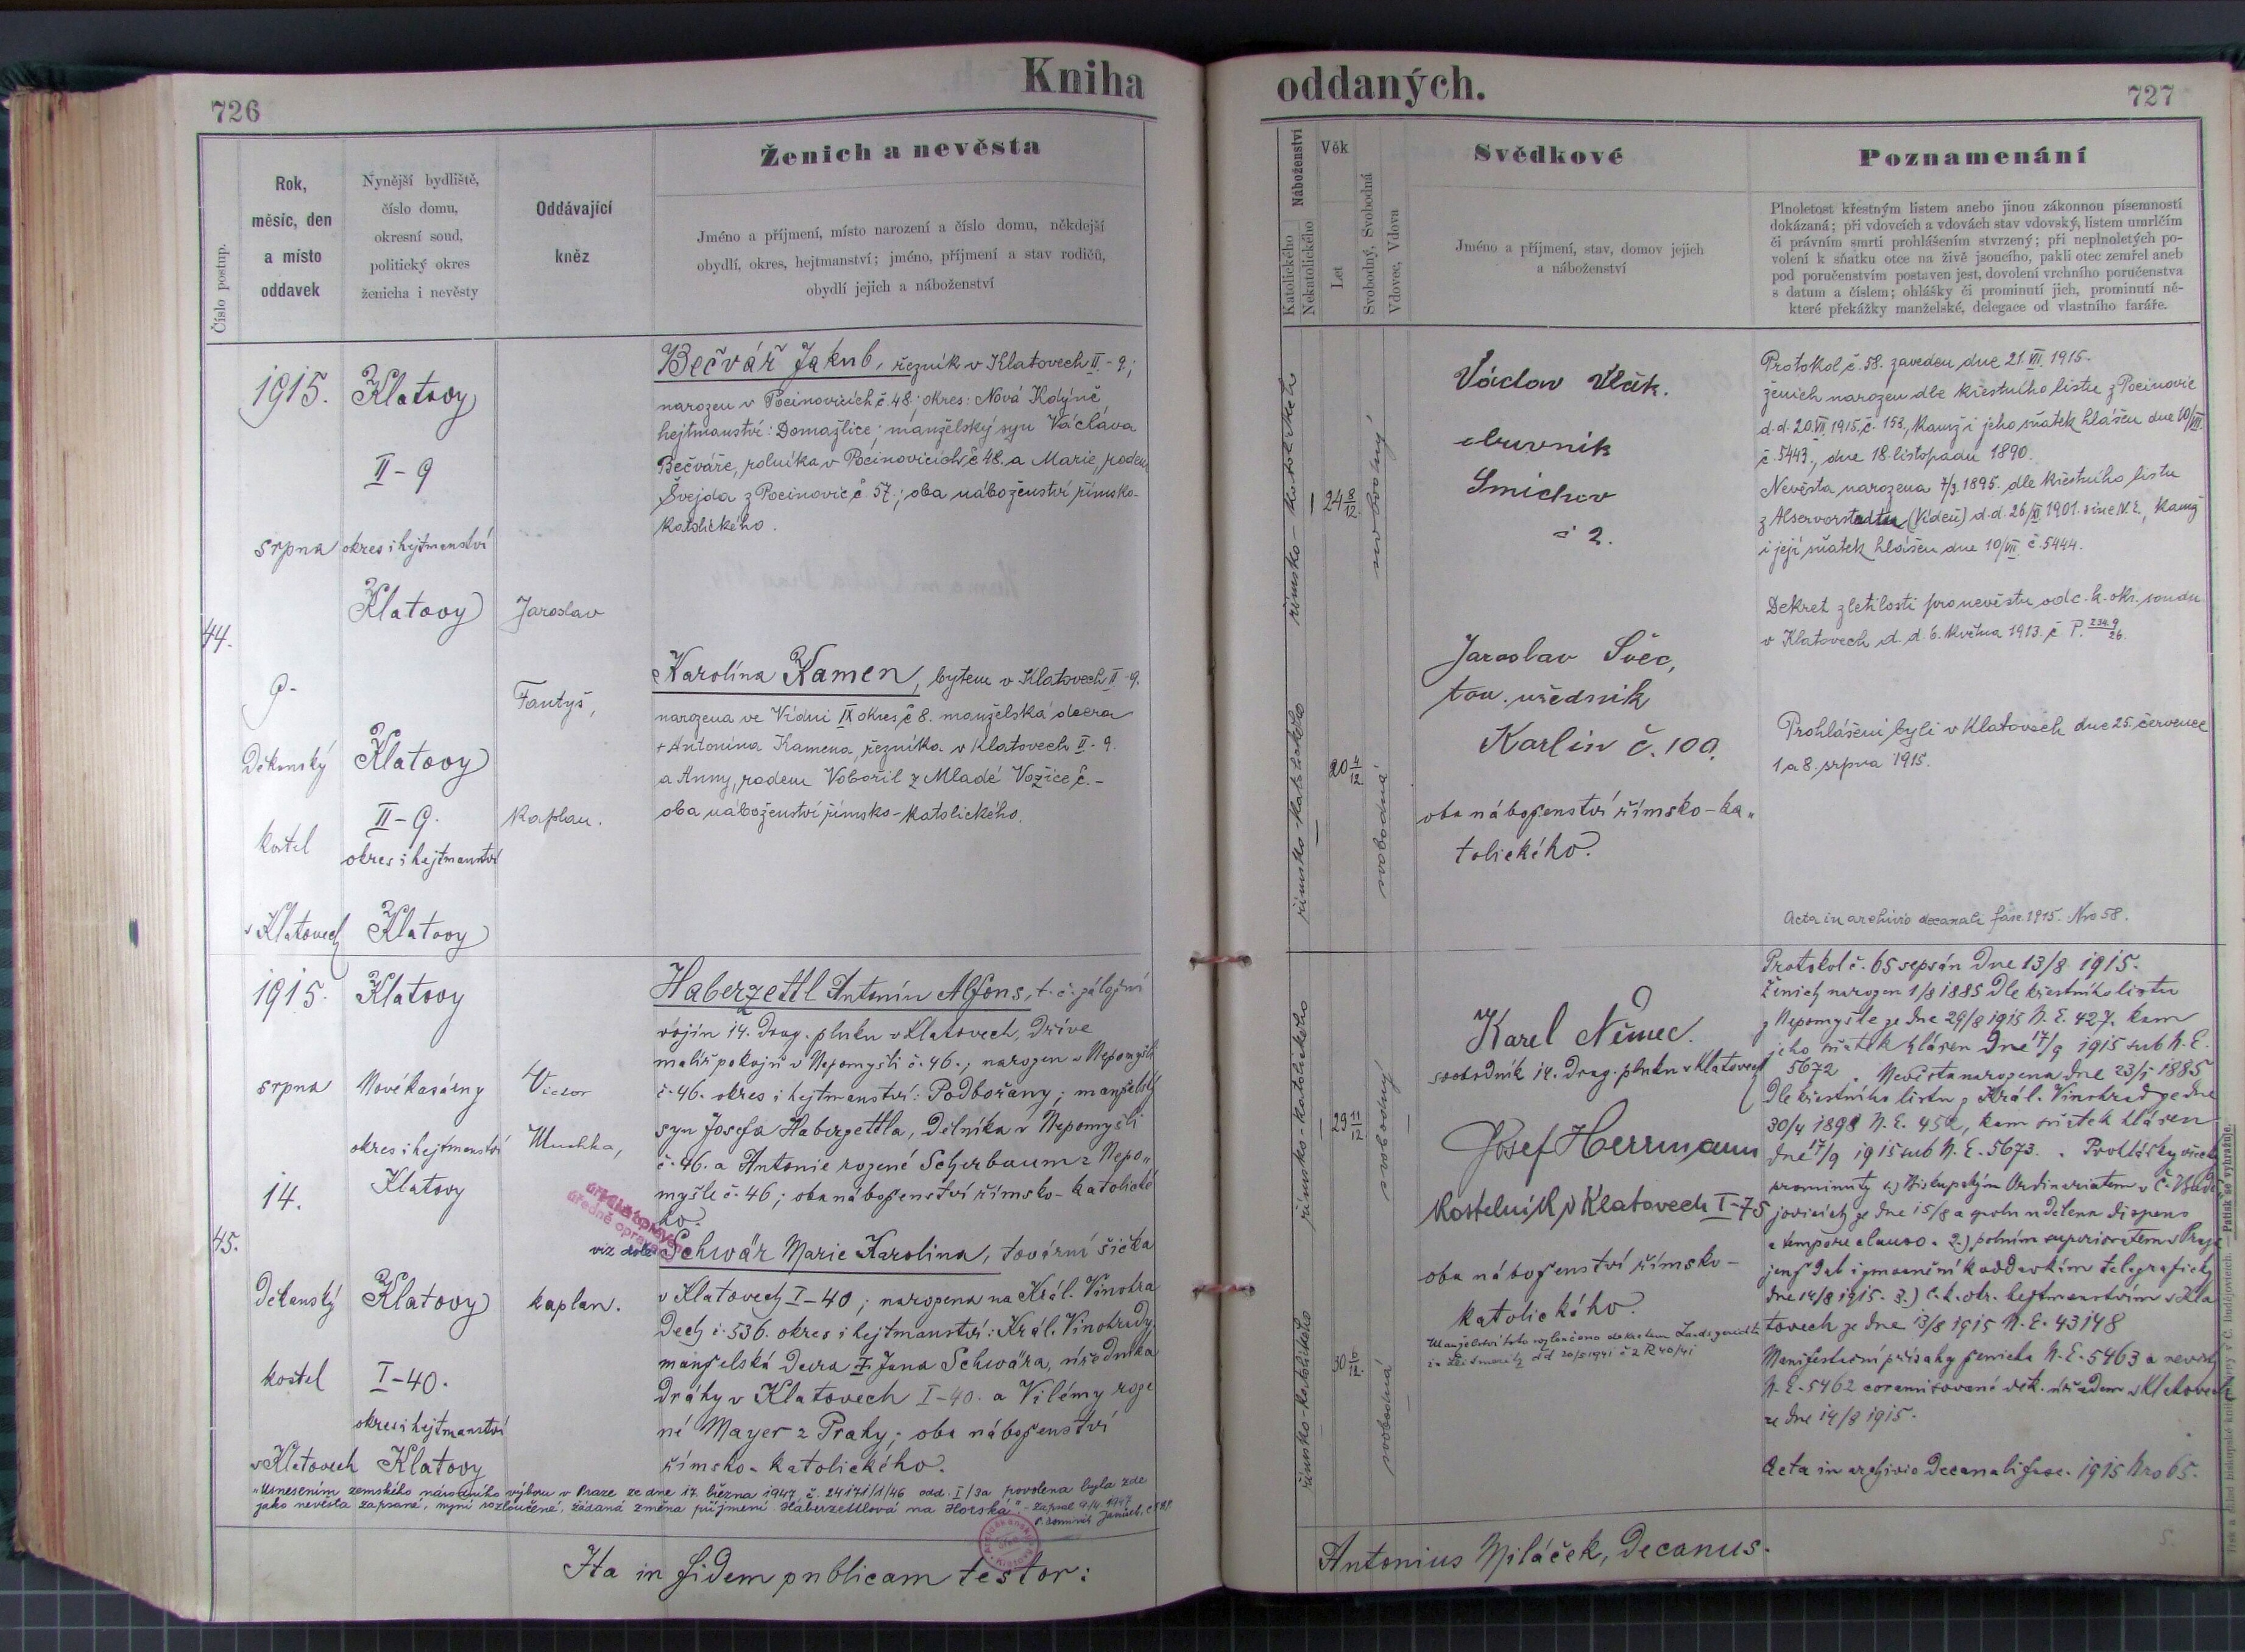 Kniha oddaných.
726
727
Číslo postup.
Rok,
měsíc, den
a místo
oddavek
Nynější bydliště,
číslo domu,
okresní soud,
politický okres
ženicha i nevěsty
Oddávající
kněz
Ženich a nevěsta
Jméno a příjmení, místo narození a číslo domu, někdejší
obydlí, okres, hejtmanství; jméno, příjmení a stav rodičů,
obydlí jejich a náboženství
Náboženství
Katolického
Nekatolického
Věk
Let
Svobodný, Svobodná
Vdovec, Vdova
Svědkové
Jméno a příjmení, stav, domov jejich
a náboženství
Poznamenání
Plnoletost křestným listem anebo jinou zákonnou písemností
dokázaná; při vdovcích a vdovách stav vdovský, listem umrlčím
či právním smrti prohlášením stvrzený; při neplnoletých po-
volení k sňatku otce na živě jsoucího, pakli otec zemřel aneb
pod poručenstvím postaven jest, dovolení vrchního poručenstva
s datum a číslem; ohlášky či prominutí jich, prominutí ně-
které překážky manželské, delegace od vlastního faráře.
44.
1915.
srpna
9-
Děkanský
kostel
v Klatovech
Klatovy
II-9
okres i hejtmanství
Klatovy
Klatovy
II-9.
okres i hejtmanství
Klatovy
Jaroslav
Fantyš,
kaplan.
Bečvář Jakub, řezník v Klatovech II-9.;
narozen v Pocinovicích č 48.; okres: Nová Kdýně,
hejtmanství: Domažlice; manželský syn Václava
Bečváře, rolníka v Pocinovicích č 48. a Marie, rodem
Švejda z Pocinovic č 57.; oba náboženství římsko-
katolického.
Karolína Kamen, bytem v Klatovech II-9.
narozena ve Vídni IX okres, č 8. manželská dcera
+ Antonína Kamena, řezníka v Klatovech II-9.
a Anny, rodem Vobořil z Mladé Vožice č.-
oba náboženství římsko-katolického.
římsko-katolického
24 8/12
svobodný
římsko-katolického
20 4/12
svobodná
Václav Vlček.
obuvník
Smíchov
č 2.
Jaroslav Švec,
tov. úředník
Karlín č. 100.
oba náboženství římsko-ka„
tolického.
Protokol č. 58. zaveden dne 21. VII. 1915.
ženich narozen dle křestního listu z Pocinovic
d.d. 20. VII 1915, č. 153, kamž i jeho sňatek hlášen dne 10/VIII.
č. 5443., dne 18. listopadu 1890.
Nevěsta narozena 7/3. 1895. dle křestního listu
z Alservorstadtu (Vídeň) d.d. 26/XI 1901. sine N.E., kamž
i její sňatek hlášen dne 10/VIII č. 5444.
Dekret zletilosti pro nevěstu od c. k. okr. soudu
v Klatovech d. d. 6. května 1913. č P.
Prohlášeni byli v Klatovech dne 25. července
1. a 8. srpna 1915.
Acta in archivio decanali fasc. 1915. Nro 58.
45.
1915.
srpna
14.
Děkanský
kostel
v Klatovech
Klatovy
Nové kasárny
okres i hejtmanství
Klatovy
Klatovy
I-40.
okres i hejtmanství
Klatovy
Victor
Muchka,
kaplan.
Haberzettl Antonín Alfons, t. č. záložní
vojín 14. drag. pluku v Klatovech, dříve
malíř pokojů v Nepomyšli č. 46.; narozen v Nepomyšli
č. 46. okres i hejtmanství: Podbořany; manželský
syn Josefa Haberzettla, dělníka v Nepomyšli
č. 46. a Antonie rozené Scherbaum z Nepo„
myšle č. 46; oba náboženství římsko-katolické
ho.
viz dole
Schwär Marie Karolina, tovární šička
v Klatovech I-40; narozena na Král. Vinohra
dech č. 536. okres i hejtmanství: Král. Vinohrady,
manželská dcera Jana Schwära, úředníka
dráhy v Klatovech I-40. a Vilémy roze
né Mayer z Prahy; oba náboženství
římsko-katolického.
„Usnesením zemského národního výboru v Praze ze dne 17. března 1947, č. 24171/1/46 odd. I/3a povolena byla zde
jako nevěsta zapsané, nyní rozloučené, žádaná změna příjmení Haberzettlová na Horská". - Zapsal 9/4. 1947
římsko-katolického
29 11/12
svobodný
římsko-katolického
30 6/12
svobodná
Karel Němec.
svobodník 14. drag. pluku v Klatovech
Josef Herrmann
kostelník v Klatovech I-75
oba náboženství římsko-
katolického.
Manželství toto rozloučeno dekretem Landsgericht
in Leitmeritz dd 20/5 1941 č 2 R 40/41
Protokol č. 65 sepsán dne 13/8 1915.
Ženich narozen 1/8 1885 dle křestního listu
z Nepomyšle ze dne 29/8 1915 N. E. 427. kam
jeho sňatek hlášen dne 17/9 1915 sub N. E.
5672. Nevěsta narozena dne 23/1 1885
dle křestního listu z Král. Vinohrad ze dne
30/4 1898 N. E. 452, kam sňatek hlášen
dne 17/9 1915 sub N. E. 5673. Prohlášky všecky
prominuty 1.) Biskupským Ordinariatem v Č. Budě
jovicích ze dne 15/8 a spolu udělena dispens
a tempore clauso. 2.) polním superiorátem v Praze
jenž dal i zmocnění k oddavkám telegraficky
dne 14/8 1915. 3.) c. k. okr. hejtmanstvím v Kla
tovech ze dne 13/8 1915 N. E. 43148
Manifestační přísahy ženicha N. E. 5463 a nevěsty
N. E. 5462 coramisované děk. úřadem v Klatovech
ze dne 14/8 1915.
Acta in archivio Decanali fasc. 1915 Nro 65.
Ita in fidem publicam testor:
Antonius Miláček, Decanus.
Tisk a sklad biskupské knihtiskárny v Č. Budějovicích. — Patisk se vyhražuje.